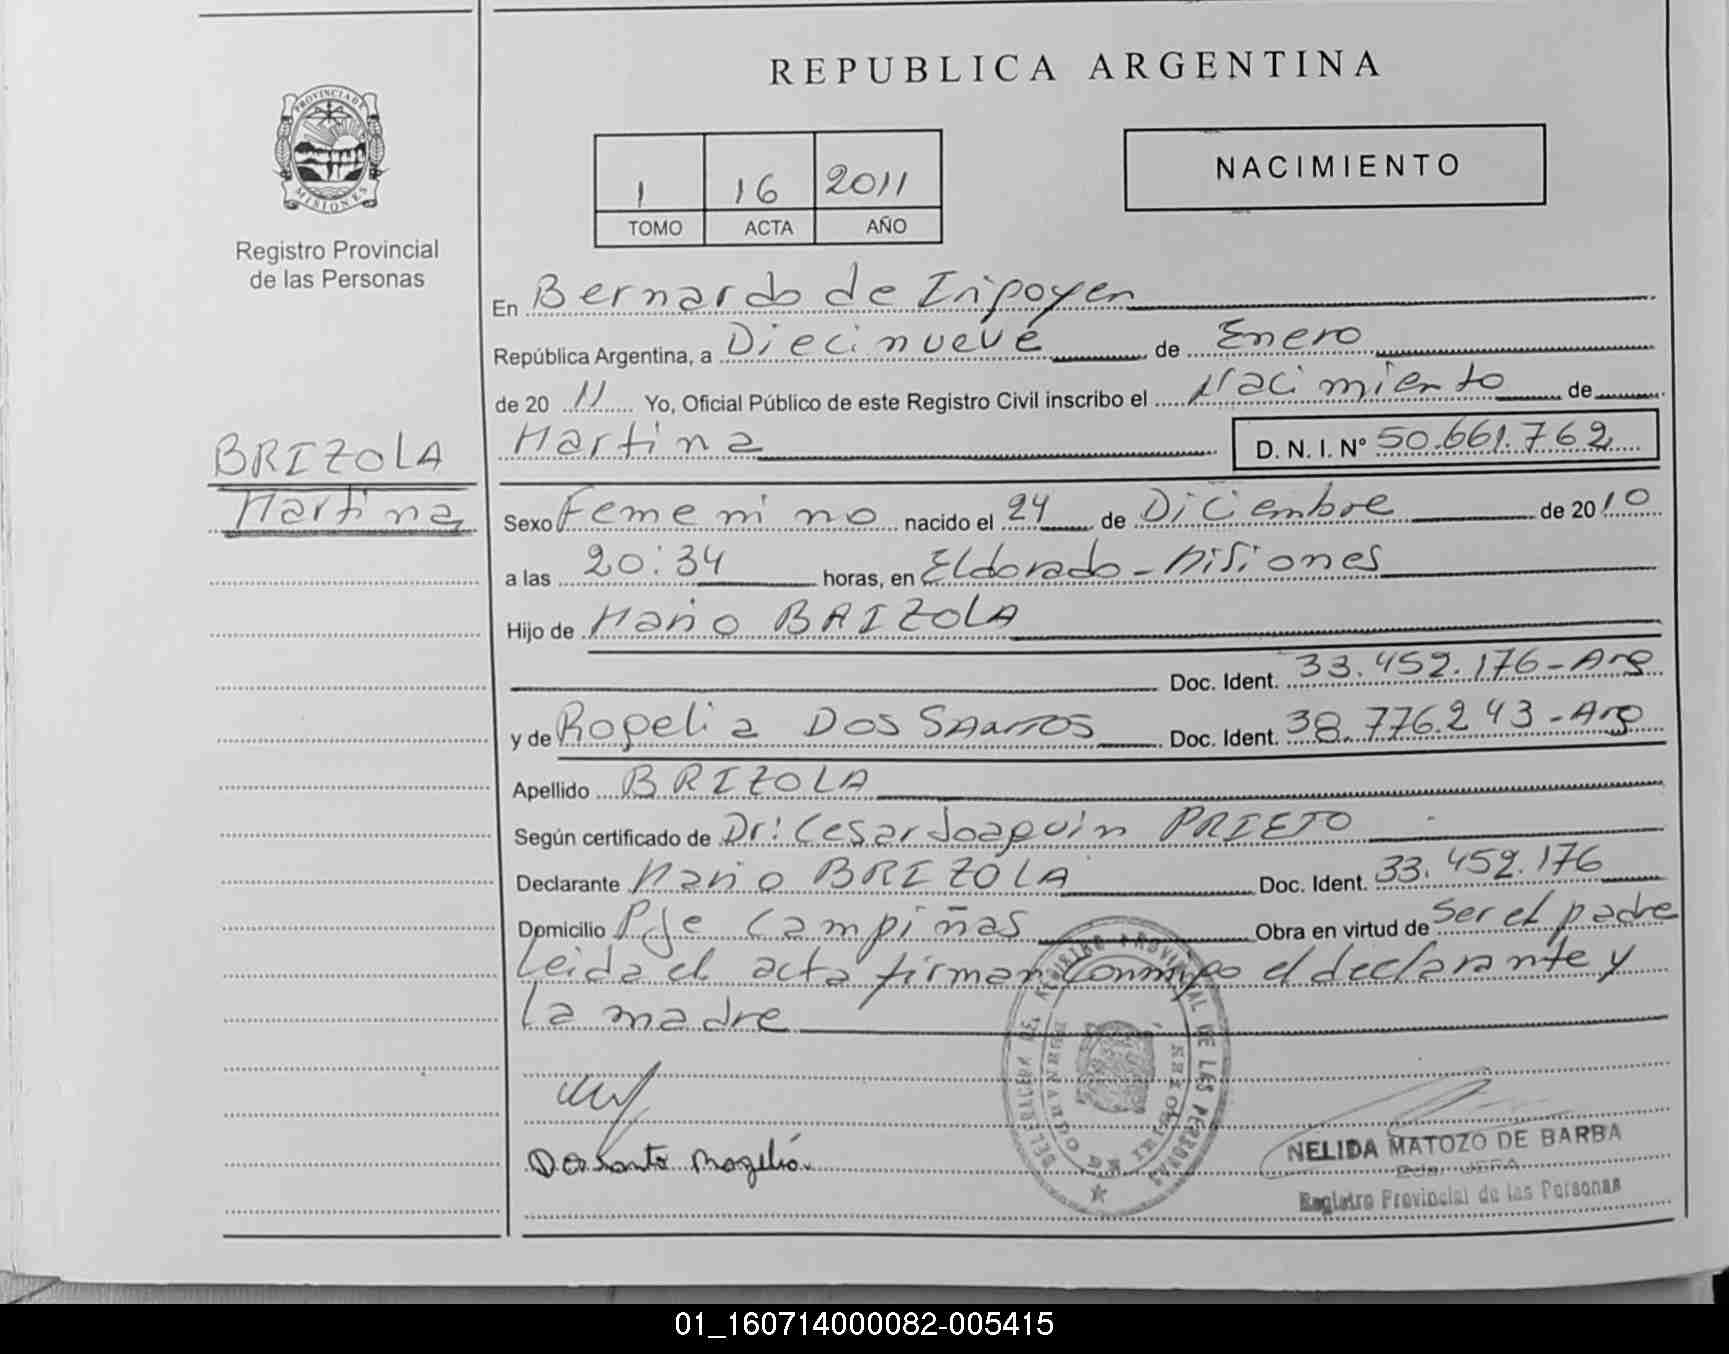 REPUBLICA ARGENTINA
PROVINCIA DE
MISIONES
Registro Provincial
de las Personas
1 16 2011
TOMO ACTA AÑO
NACIMIENTO
En Bernardo de Irigoyen
República Argentina, a Diecinueve de Enero
de 20 11 Yo, Oficial Público de este Registro Civil inscribo el Nacimiento de
Martina D. N. I. Nº 50.661.762
BRIZOLA
Martina
Sexo Femenino nacido el 24 de Diciembre de 2010
a las 20:34 horas, en Eldorado - Misiones
Hijo de Mario BRIZOLA
Doc. Ident. 33.452.176 - Arg
y de Rogelia DOS SANTOS Doc. Ident. 38.776.243 - Arg
Apellido BRIZOLA
Según certificado de Dr: Cesar Joaquin PRIETO
Declarante Mario BRIZOLA Doc. Ident. 33.452.176
Domicilio Pje Campiñas Obra en virtud de Ser el padre
Leida el acta firman Conmigo el declarante y
la madre
REGISTRO PROVINCIAL DE LAS PERSONAS
BERNARDO DE IRIGOYEN
Dos santo Rogelia
NELIDA MATOZO DE BARBA
Registro Provincial de las Personas
01_160714000082-005415